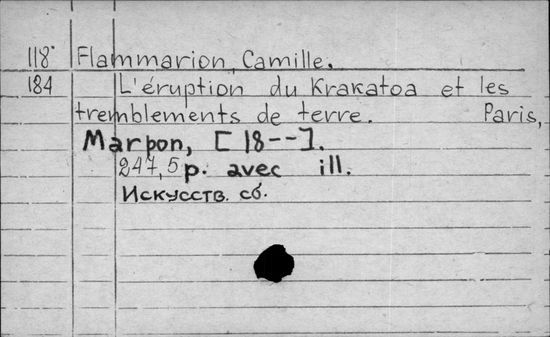 118 Flammarion, Camille.
184 L'éruption du Krakatoa et les
tremblements de terre. Paris,
Marpon, [18--].
247,5 p. avec ill.
Искусств. сб.